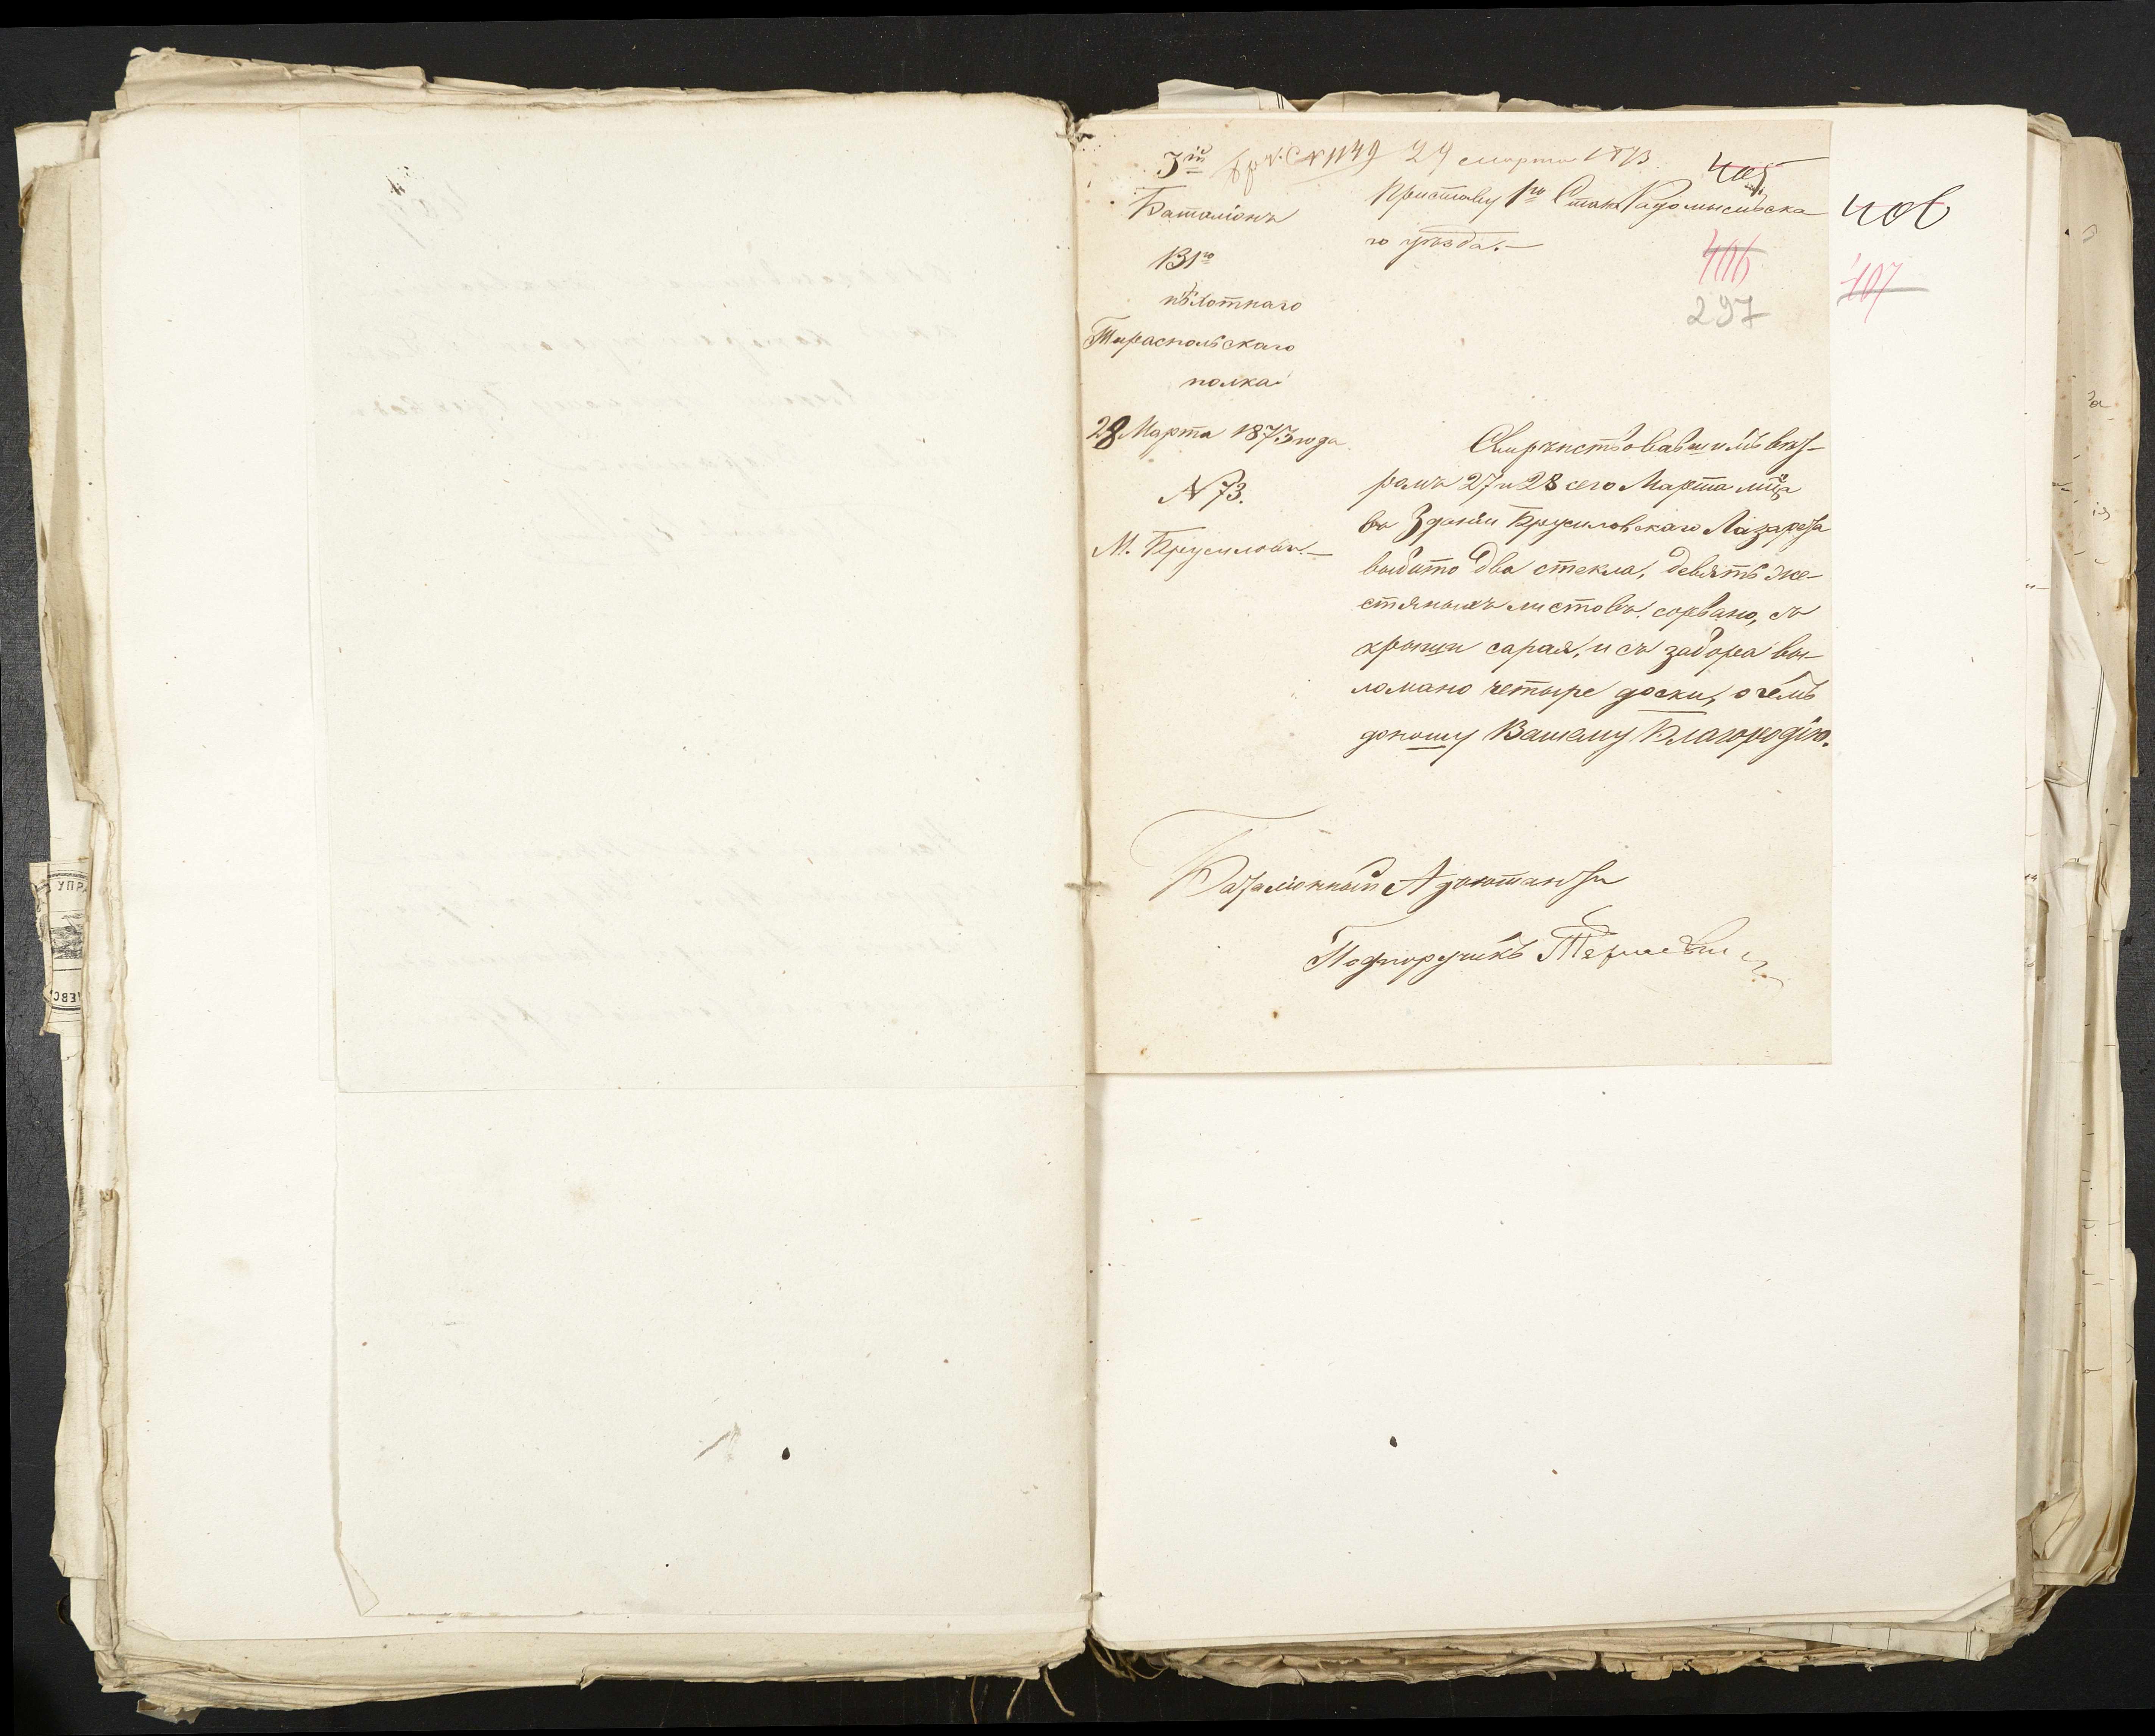 3ій
№ 1149 29 марта 1873
405
Баталіонъ
131го
пѣхотнаго
Тираспольскаго
полка
28 Марта 1873 года
№ 73.
М. Брусиловъ.—
Приставу 1го Стана Радомысльска
го уѣзда.—
406
406
107
297
Свирѣпствовавшимъ вѣт-
ромъ 27 и 28 сего Марта мца
въ Зданіи Брусиловскаго Лазарета
выбито два стекла, девять же-
стяныхъ листовъ сорвано, съ
крыши сарая, и съ забора вы-
ломано четыре доски, о чемъ
доношу Вашему Благородію.
Баталіонный Адъютантъ
Подпоручикъ
УПРА
ІЕВС